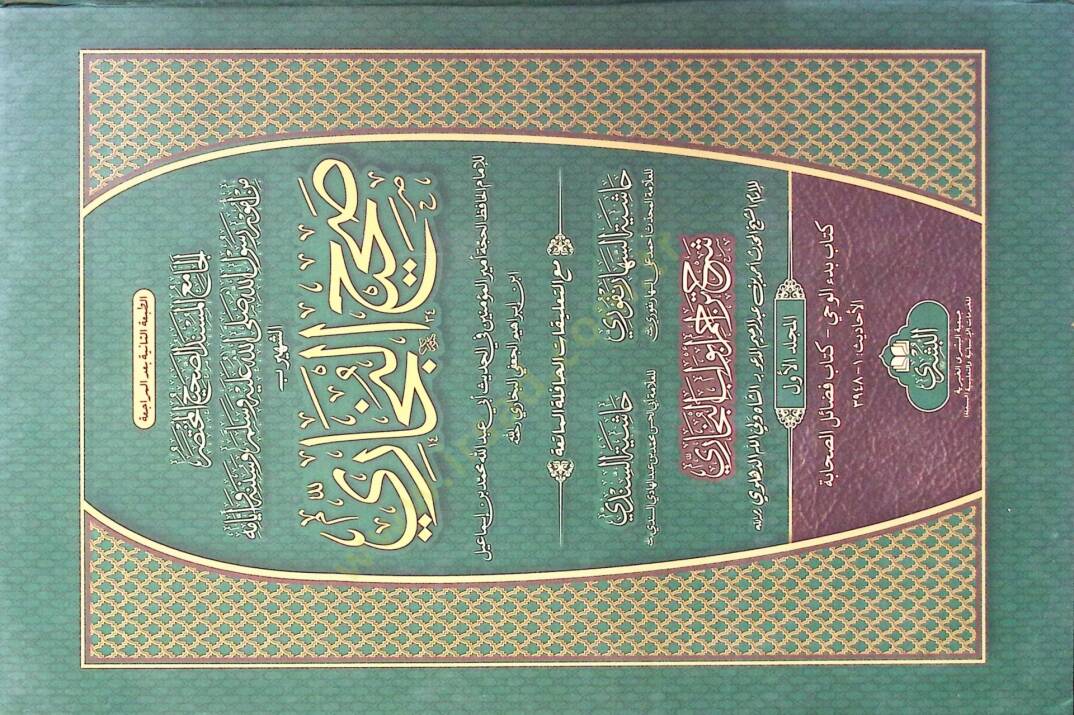 الطبعة الثانية بعد المراجعة
الجامع المسند الصحيح المختصر
من أمور رسول الله صلى الله عليه وسلم وسننه وأيامه
الشهير بـ
صحيح البخاري
للإمام الحافظ الحجة أمير المؤمنين في الحديث أبي عبد الله محمد بن إسماعيل
ابن إبراهيم الجعفي البخاري
مع التعليقات الحافلة الماتعة
حاشية السهارنفوري
للعلامة المحدث أحمد علي السهارنفوري
حاشية السندي
للعلامة أبي الحسن محمد بن عبد الهادي السندي
شرح تراجم أبواب البخاري
للإمام الشيخ المحدث أحمد بن عبد الرحيم المدعو بـ الشاه ولي الله الدهلوي
المجلد الأول
كتاب بدء الوحي - كتاب فضائل الصحابة
الأحاديث: ١ - ٣٩٤٨
البشرى
جمعية البشرى الخيرية
للخدمات الإنسانية والتعليمية